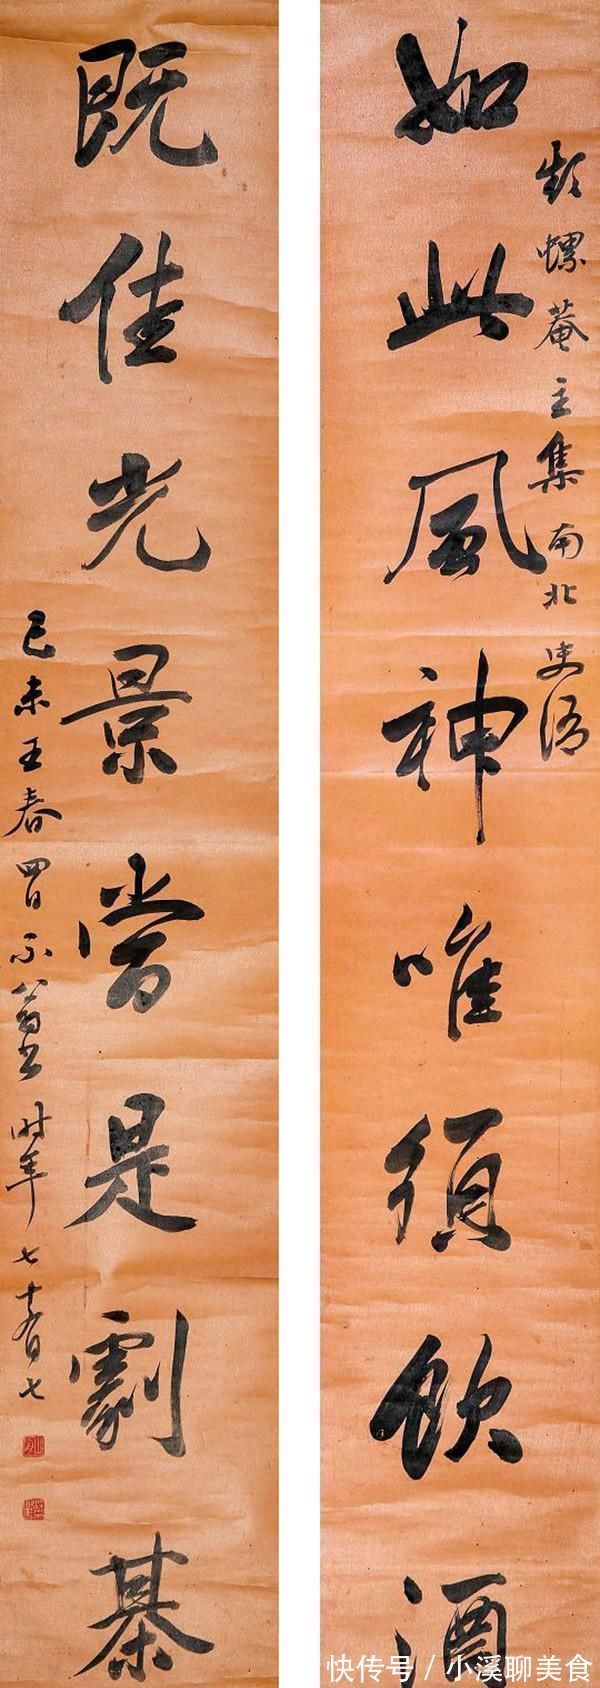 螺菴主集南北史語
如此風神唯須飲酒
既佳光景當是劇棊
己未王春四日翁書時年七十有七
快传号 / 小溪聊美食